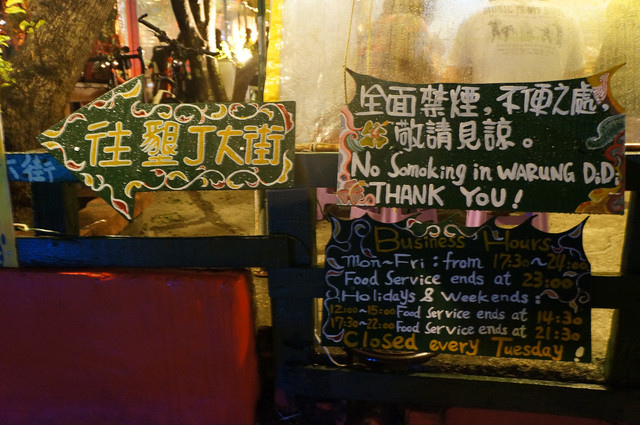 往墾丁大街
街
全面禁煙，不便之處，
敬請見諒。
No Somoking in WARUNG DiD
THANK YOU!
Business Hours
Mon~Fri : from 17:30~24:00
Food Service ends at 23:00
Holidays & Weekends :
12:00~15:00 Food Service ends at 14:30
17:30~22:00 Food Service ends at 21:30
Closed every Tuesday !